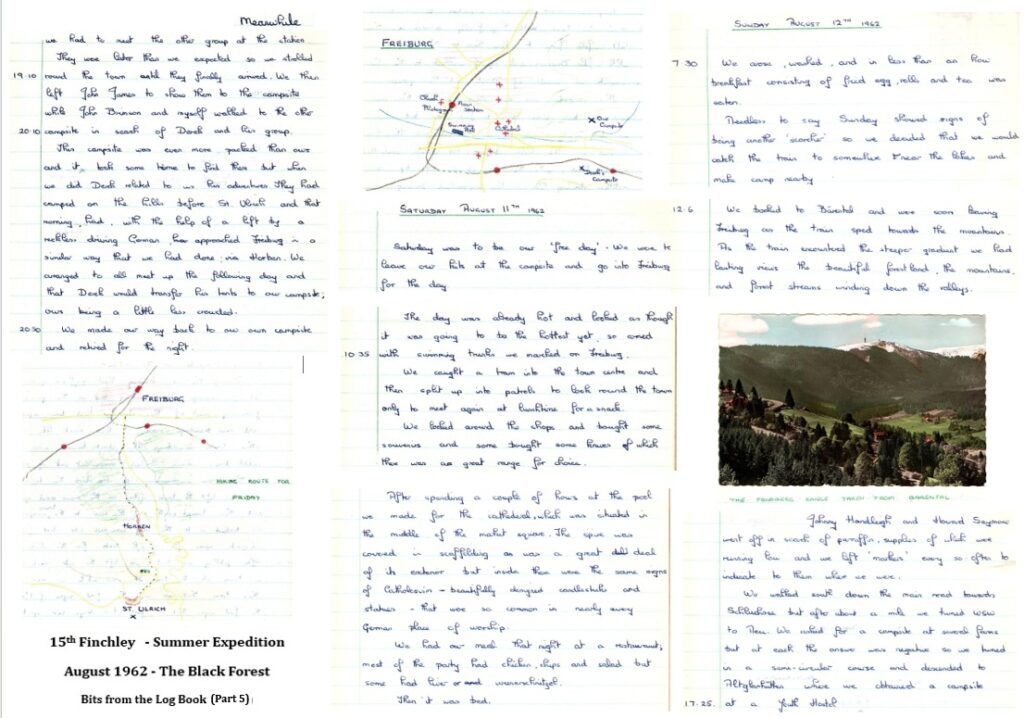 Meanwhile
we had to meet the other group at the station.
They were later than we expected so we strolled
19.10 round the town until they finally arrived. We then
left John James to show them to the campsite
while John Brunson and myself walked to the other
20.10 campsite in search of Derek and his group.
This campsite was even more packed than ours
and it took some time to find them but when
we did Derek related to us his adventures They had
camped on the hills before St. Ulrich and that
morning, had, with the help of a lift by a
reckless driving German, approached Freiburg in a
similar way that we had done; via Horben. We
arranged to all meet up the following day and
that Derek would transfer his tents to our campsite;
ours being a little less crowded.
We made our way back to our own campsite
and retired for the night.
FREIBURG
HIKING ROUTE FOR
FRIDAY
HORBEN
ST. ULRICH
15th Finchley - Summer Expedition
August 1962 - The Black Forest
Bits from the Log Book (Part 5)
FREIBURG
Main
Station
Swimming
Cathedral
Our
Campsite
Derek's
Campsite
SATURDAY AUGUST 11TH 1962
Saturday was to be our 'free day'. We were to
leave our kits at the campsite and go into Freiburg
for the day
The day was already hot and looked as though
it was going to to be the hottest yet, so armed
10.35 with swimming trunks we marched on Freiburg.
We caught a train into the town centre and
then split up into patrols to look round the town
only to meet again at lunchtime for a snack.
We looked around the shops and bought some
souvenirs and some bought some knives of which
there was a great range for choice.
After spending a couple of hours at the pool
we made for the cathedral, which was situated in
the middle of the market square. The spire was
covered in scaffolding as was a great deal
of its exterior but inside there were the same signs
of Catholicism - beautifully designed candlesticks and
statues - that were so common in nearly every
German place of worship.
We had our meal that night at a restaurant;
most of the party had chicken, chips and salad but
some had liver or
Then it was bed.
SUNDAY AUGUST 12TH 1962
7.30 We arose, washed, and in less than an hour
breakfast consisting of fried egg, rolls and tea was
eaten.
Needless to say Sunday showed signs of
being another 'scorcher' so we decided that we would
catch the train to somewhere near the lakes and
make camp nearby
12.6 We booked to Bärental and were soon leaving
Freiburg as the train sped towards the mountains.
As the train encountered the steeper gradient we had
lasting views the beautiful forest land, the mountains,
and forest streams winding down the valleys.
THE FELDBERG RANGE TAKEN FROM BARENTAL
Johnny Handleigh and Howard Seymour
went off in search of paraffin, supplies of which were
running low and we left 'markers' every so often to
indicate to them where we were.
We walked south down the main road towards
Schluchsee but after about a mile we turned WSW
to We asked for a campsite at several farms
but at each the answer was negative so we turned
in a semi-circular course and descended to
Altglashütten where we obtained a campsite
17.25. at a Youth Hostel